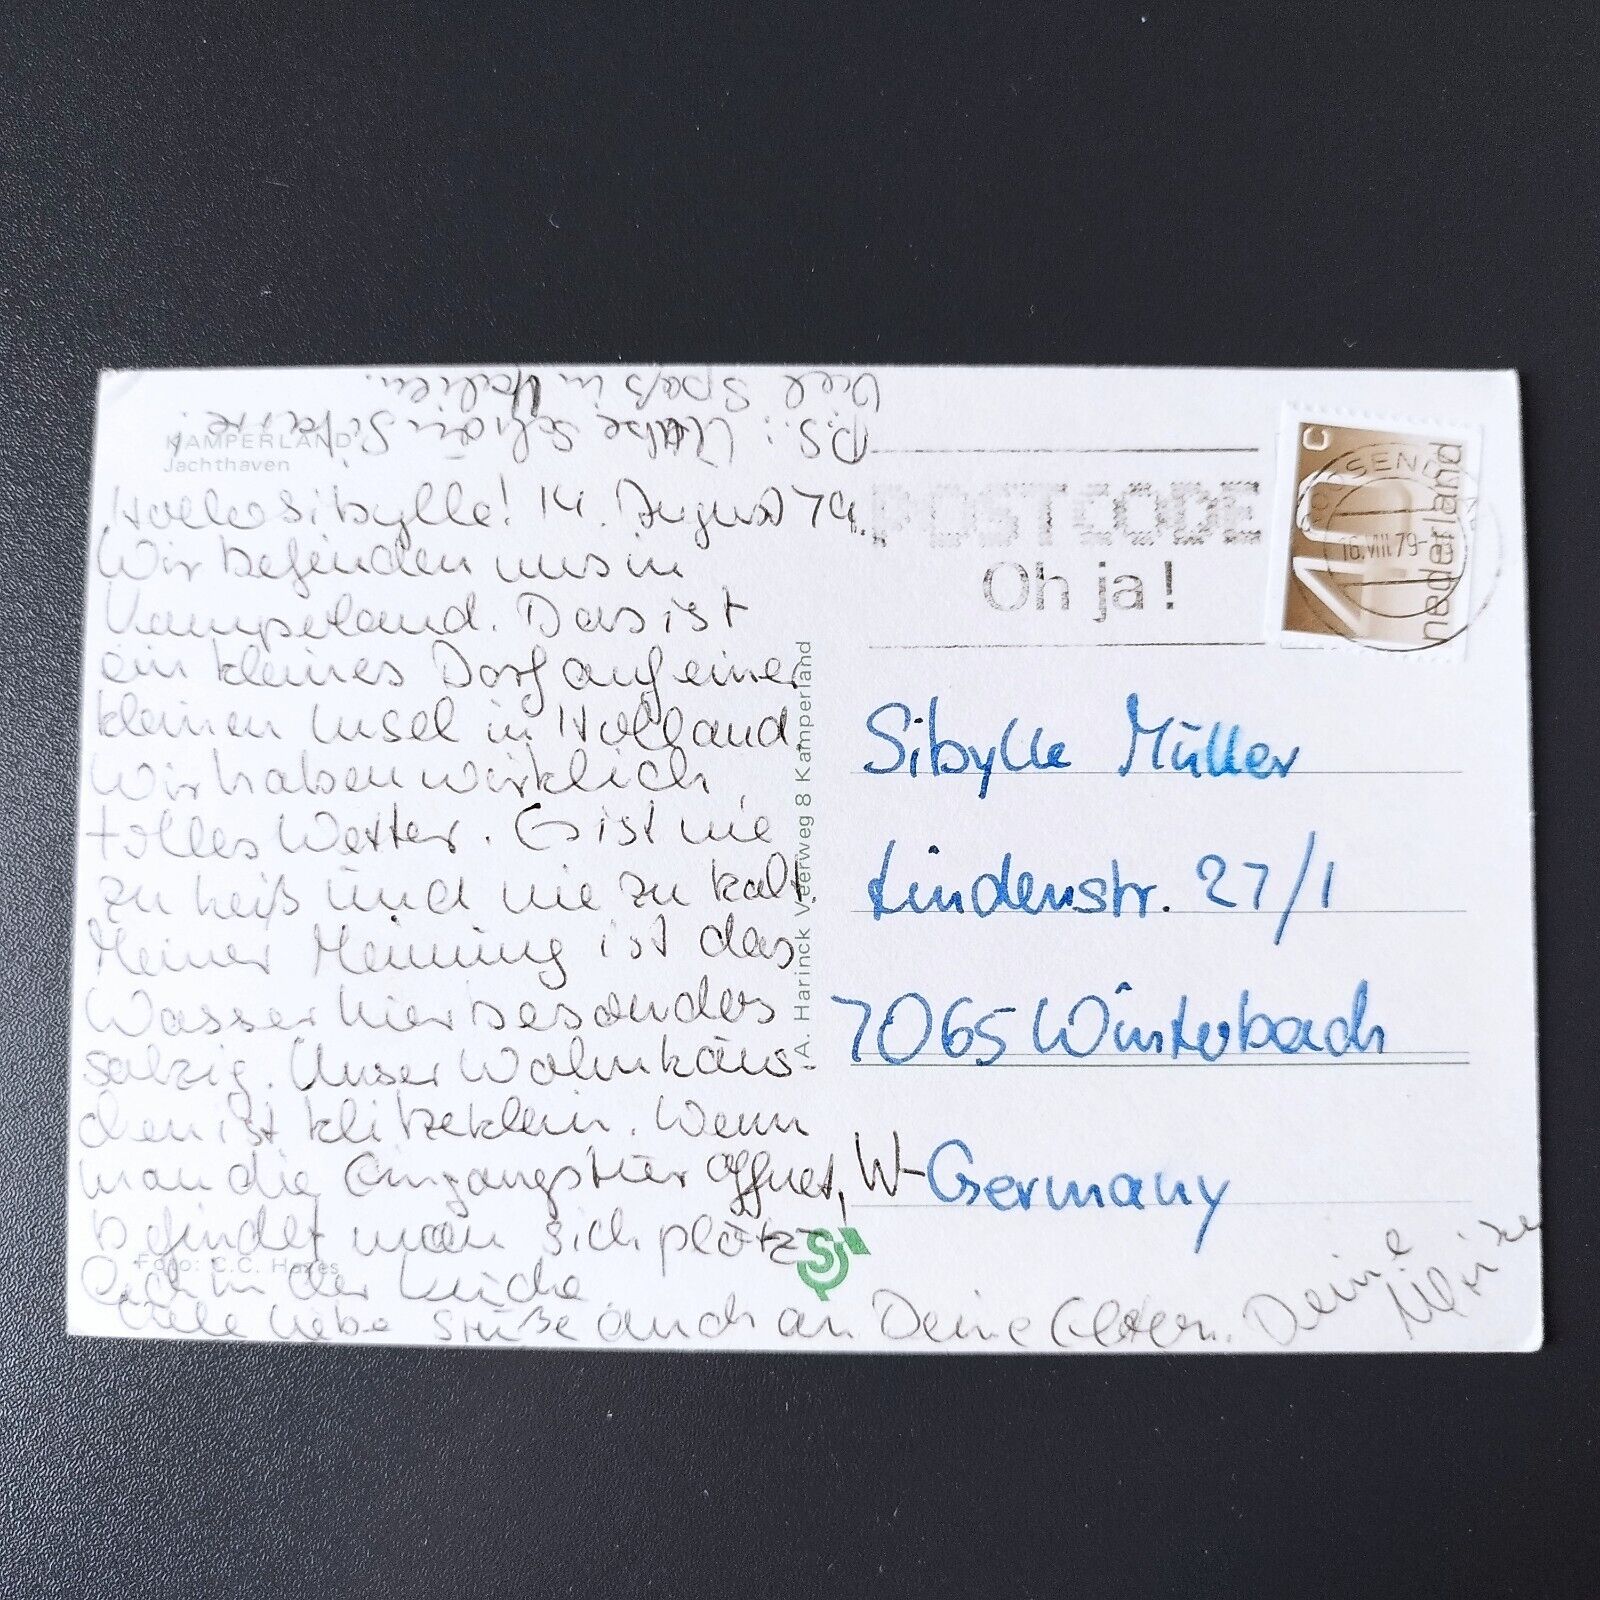 KAMPERLAND
Jachthaven
Hallo Sibylle! 14. August 79.
Wir befinden uns in
Kamperland. Das ist
ein kleines Dorf auf einer
kleinen Insel in Holland.
Wir haben wirklich
tolles Wetter. Es ist nie
zu heiß und nie zu kalt.
Meiner Meinung ist das
Wasser hier besonders
salzig. Unser Wohnhäus-
chen ist klitzeklein. Wenn
man die Eingangstür öffnet,
befindet man sich plötz-
lich in der Küche
Viele liebe Grüße auch an Deine Eltern. Deine
P.S.: schöne
Viel Spaß in Italien.
Foto: C.C. Hages
A. Harinck Veerweg 8 Kamperland
POSTCODE
Oh ja!
ROOSENDAAL
16.VIII.79
40 C
nederland
Sibylle Müller
Lindenstr. 27/1
7065 Winterbach
W-Germany